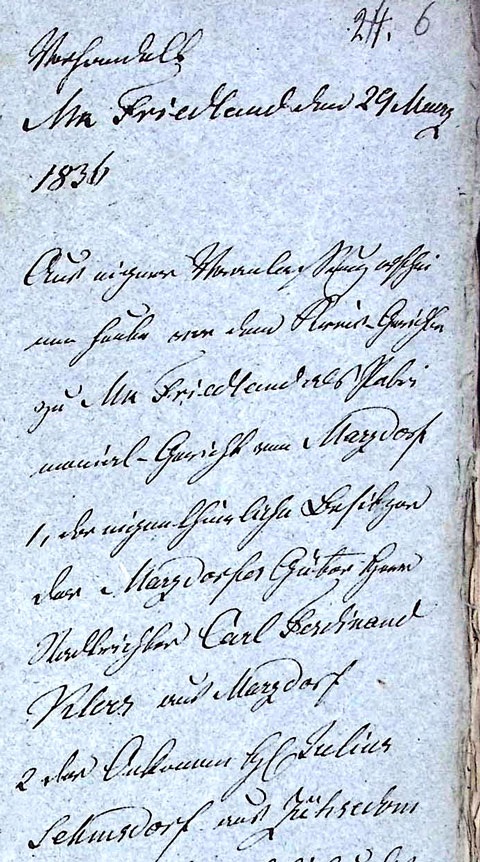 24. 6
Verhandelt
Mk Friedland den 29 Maerz
1836
Aus eigener Veranlassung erschie
nen heute vor dem Kreis-Gericht
zu Mk Friedland als Patri
monial-Gericht von Marzdorf
1, der eigenthümliche Besitzer
der Marzdorfer Güter Herr
Stadtrichter Carl Ferdinand
aus Marzdorf
2 der Oekonom Julius
Sehmsdorf aus